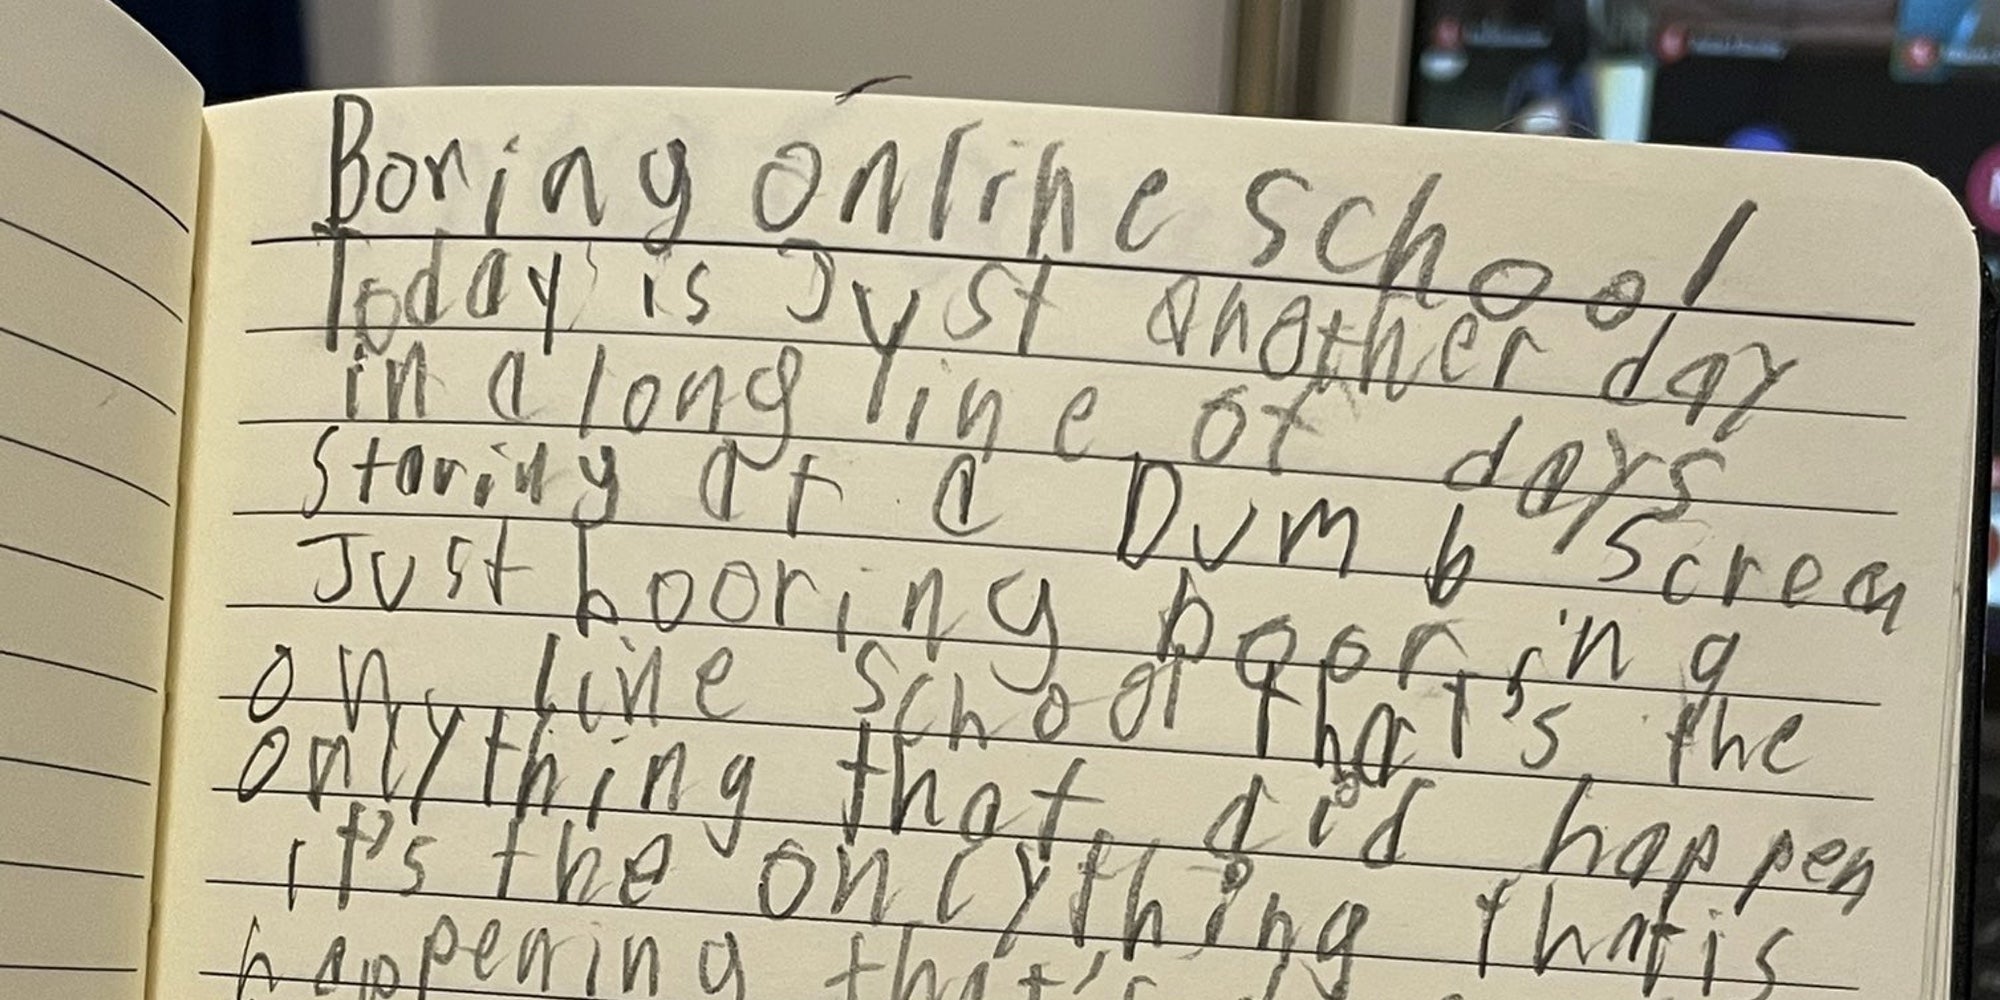 Boring online school
Today is Just another day
in a long line of days
Staring at a Dumb Screen
Just booring booring
on line School that's the
only thing that did happen
it's the only thing that is
happening that's